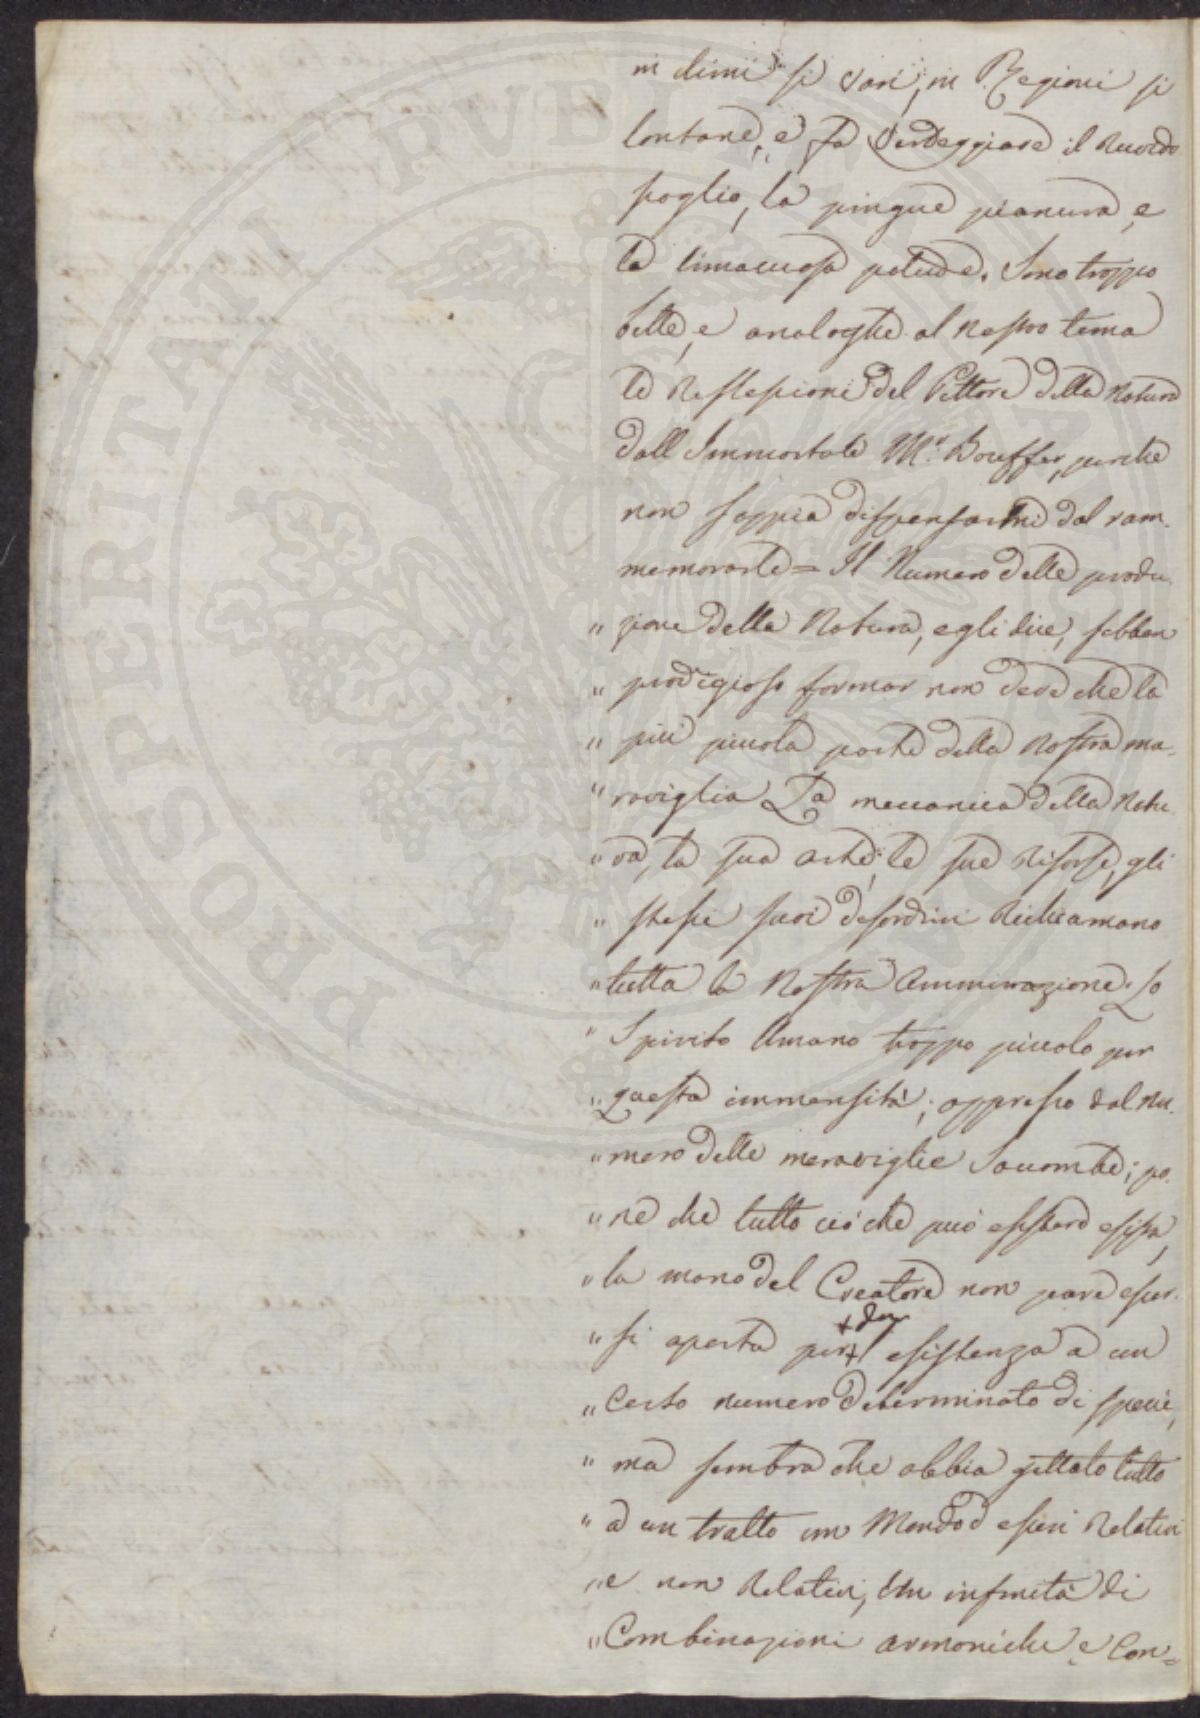 in climi sì varj, in Regioni sì
lontane, e fa verdeggiare il ruvido
scoglio, la pingue pianura, e
la limacciosa palude. Sono troppo
belle, e analoghe al nostro tema
le Reflessioni del Pittore della Natura
dall Immortale Mr. Bouffer, perche
non sappia dispensarmi dal ram-
memorarle = Il Numero delle produ-
" zione della Natura, egli dice, sebben
" prodigioso formar non deve che la
" più piccola parte della Nostra ma-
" raviglia La meccanica della Natu-
" ra, la sua arte, le sue risorse, gli
" stessi suoi desordini Richiamano
" tutta la Nostra Ammirazione. Lo
" Spirito Umano troppo piccolo per
" questa immensità; oppresso dal Nu-
" mero delle meraviglie Soccombe; pa-
" re che tutto ciò che può esistere esista,
" la mano del Creatore non pare esser-
" si aperta per + dar esistenza a un
" Certo numero determinato di specie,
" ma sembra che abbia gettato tutto
" a un tratto un Mondo d esseri Relativi
" e non Relativi, Un infinità di
" Combinazioni armoniche, e Con=
PROSPERITATI PVBLICAE